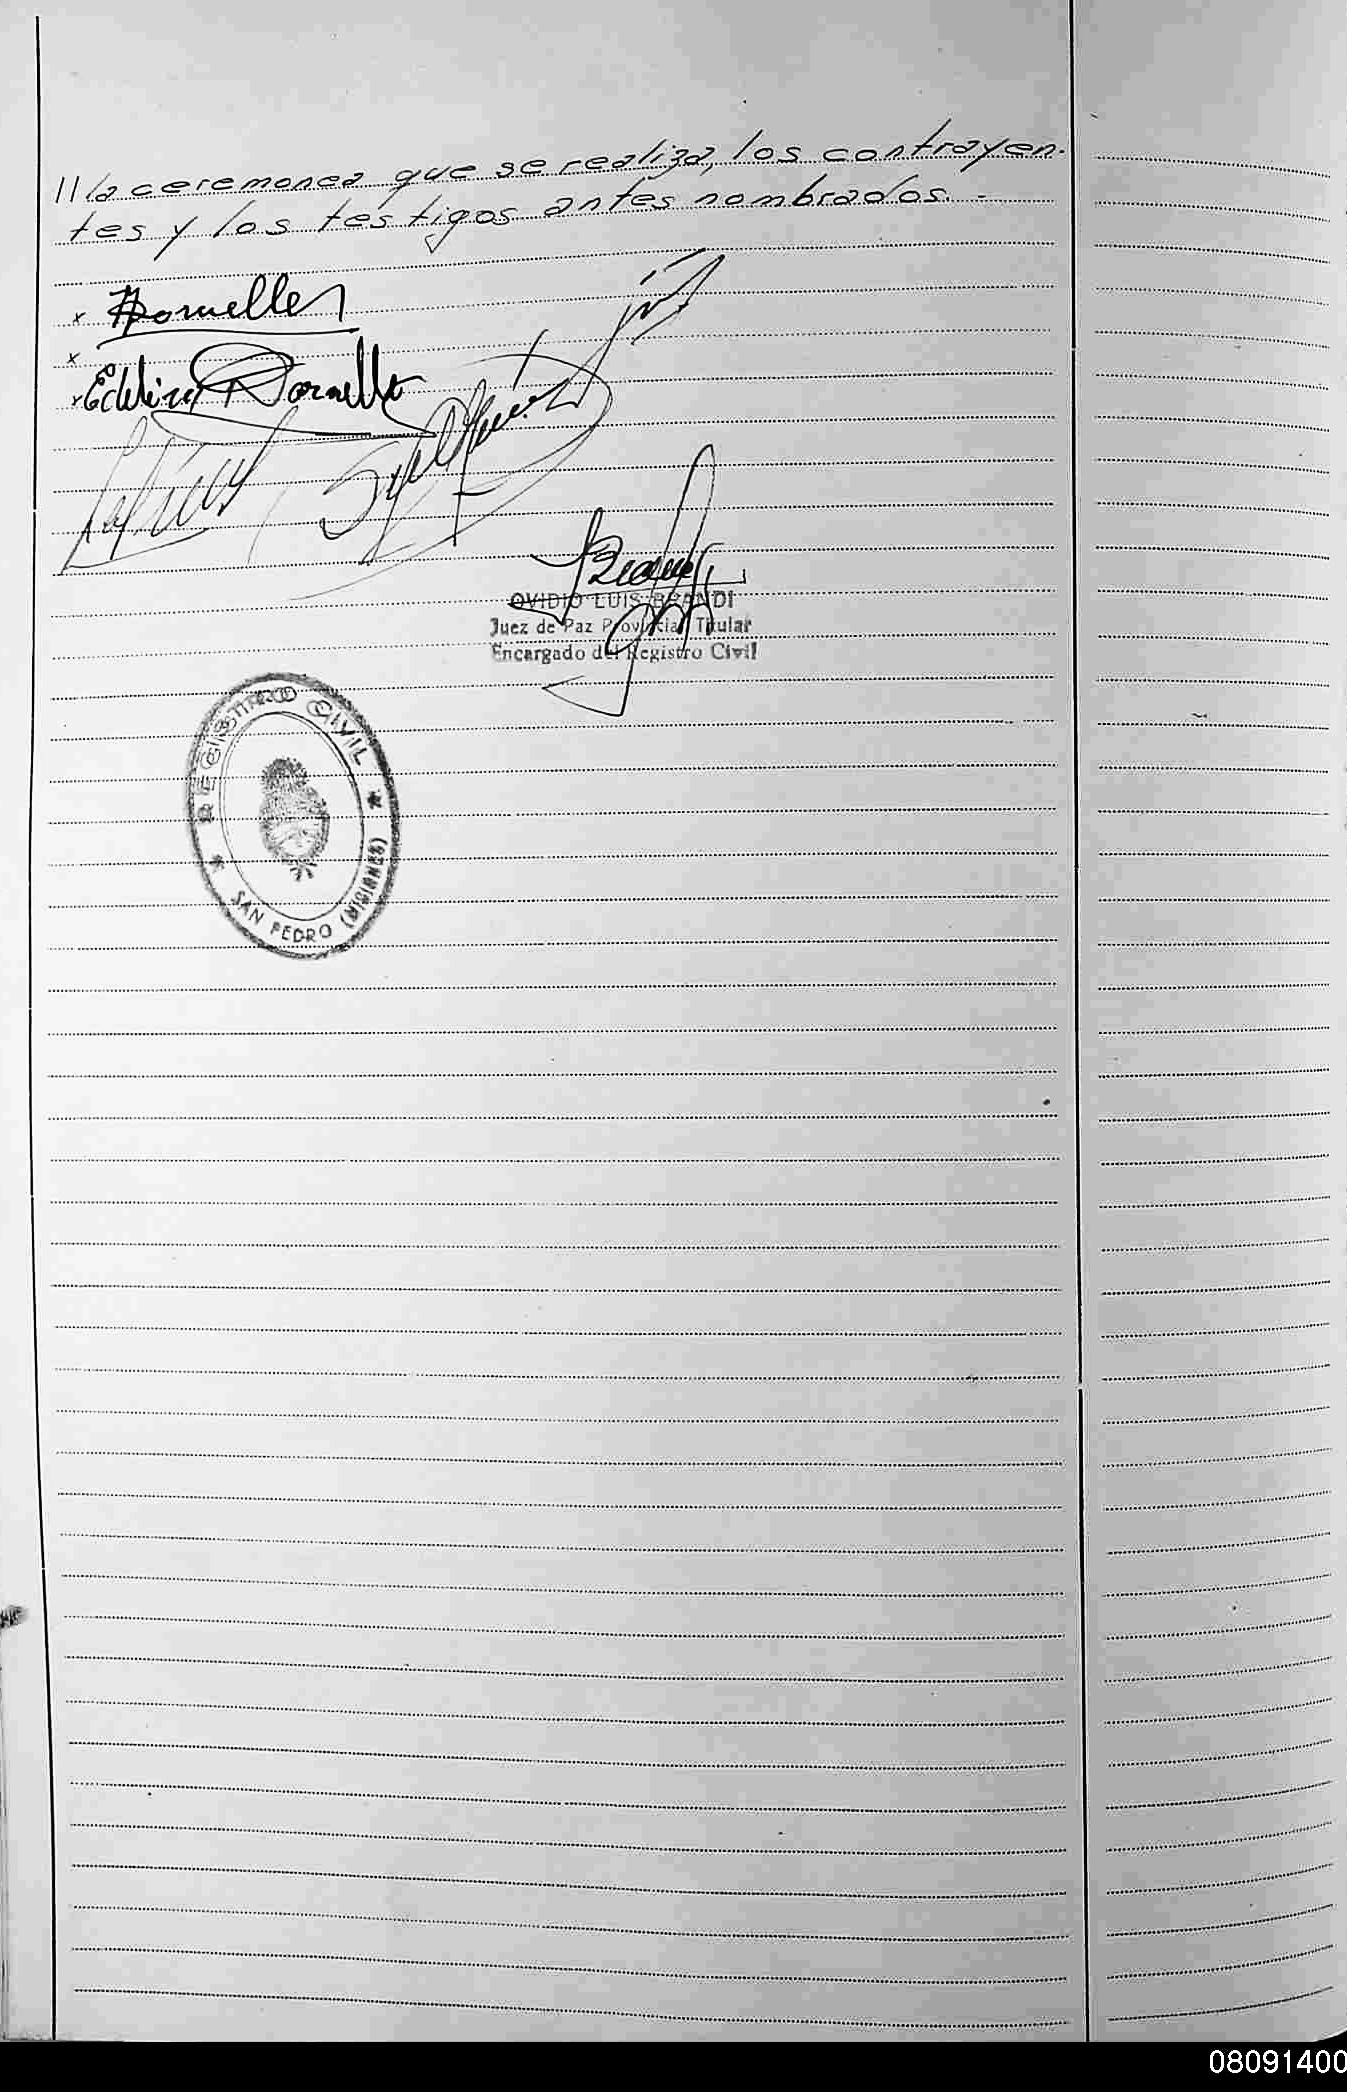 //la ceremonea que se realiza, los contrayen-
tes y los testigos antes nombrados.-
x Dornelles
x
x Edelira Dornelles
OVIDIO LUIS BRANDI
Juez de Paz Provincial Titular
Encargado del Registro Civil
REGISTRO CIVIL
SAN PEDRO (MISIONES)
08091400